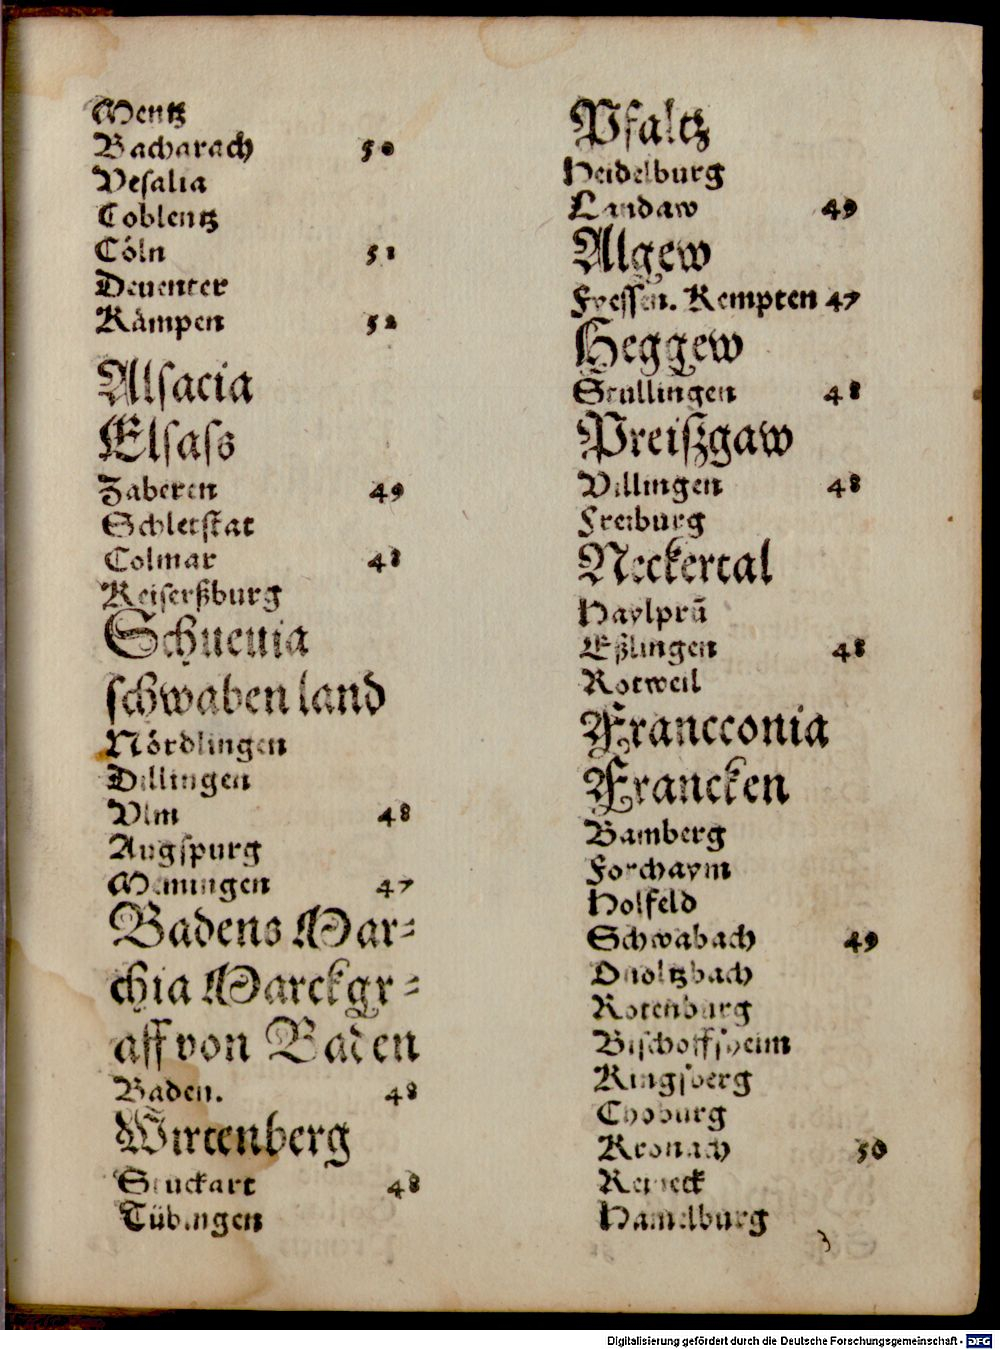 Mentz
Bacharach 50
Vesalia
Coblentz
Cöln 51
Deuenter
Kämpen 52
Alsacia
Elsass
Zaberen 49
Schletstat
Colmar 48
Keiserßburg
Schueuia
schwaben land
Nördlingen
Dillingen
Vlm 48
Augspurg
Memingen 47
Badens Mar-
chia Marckgr-
aff von Baden
Baden. 48
Wirtenberg
Stuckart 48
Tübingen
Pfaltz
Heidelburg
Landaw 49
Algew
Fyessen. Kempten 47
Heggew
Stullingen 48
Preiszgaw
Villingen 48
Freiburg
Neckertal
Haylprū
Eßlingen 48
Rotweil
Francconia
Francken
Bamberg
Forchaym
Holfeld
Schwabach 49
Onoltzbach
Rotenburg
Bischoffsheim
Kingsberg
Choburg
Kronach 50
Reineck
Hamelburg
Digitalisierung gefördert durch die Deutsche Forschungsgemeinschaft - DFG